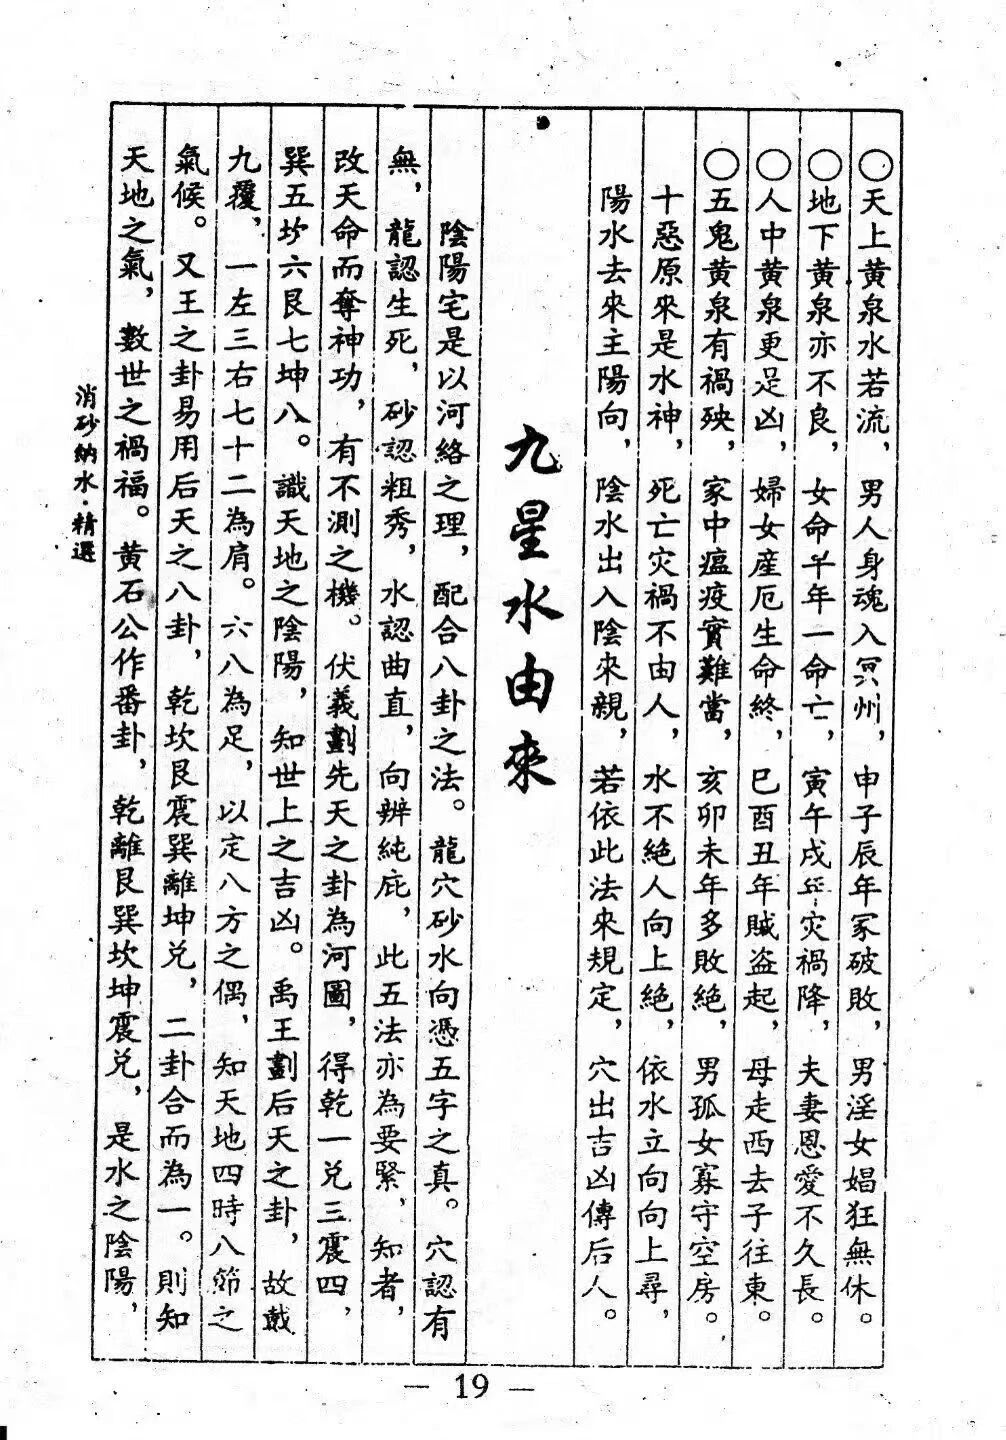 ○天上黄泉水若流，男人身魂入冥州，申子辰年冢破敗，男淫女娼狂無休。
○地下黄泉亦不良，女命午年一命亡，寅午戌年灾禍降，夫妻恩愛不久長。
○人中黄泉更足凶，婦女産厄生命終，巳酉丑年贼盗起，母走西去子往東。
○五鬼黄泉有禍殃，家中瘟疫實難當，亥卯未年多敗絶，男孤女寡守空房。
十惡原來是水神，死亡灾禍不由人，水不絶人向上絶，依水立向向上尋，
陽水去來主陽向，陰水出入陰來親，若依此法來規定，穴出吉凶傳后人。
九星水由來
陰陽宅是以河絡之理，配合八卦之法。龍穴砂水向憑五字之真。穴認有
無，龍認生死，砂認粗秀，水認曲直，向辨純庇，此五法亦為要緊，知者，
改天命而奪神功，有不測之機。伏義劃先天之卦為河圖，得乾一兑三震四，
巽五坎六艮七坤八。識天地之陰陽，知世上之吉凶。禹王劃后天之卦，故戴
九覆，一左三右七十二為肩。六八為足，以定八方之偶，知天地四時八節之
氣候。又王之卦易用后天之八卦，乾坎艮震巽離坤兑，二卦合而為一。則知
天地之氣，數世之禍福。黄石公作番卦，乾離艮巽坎坤震兑，是水之陰陽，
消砂納水·精選
— 19 —